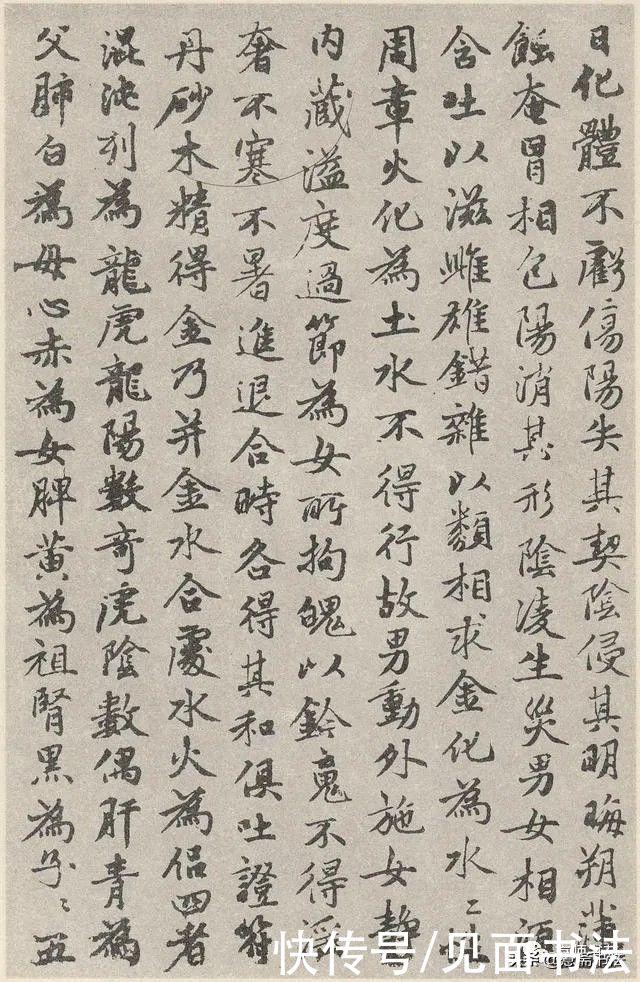 日化體不虧傷陽失其契陰侵其明晦朔薄
蝕奄冒相包陽消其形陰淩生災男女相須
含吐以滋雌雄錯雜以類相求金化為水〻性
周章火化為土水不得行故男動外施女静
内藏溢度過節為女所拘魄以鈐魂不得淫
奢不寒不暑進退合時各得其和俱吐證符
丹砂木精得金乃并金水合處水火為侶四者
混沌列為龍虎龍陽數奇虎陰數偶肝青為
父肺白為母心赤為女脾黃為祖腎黑為子〻五
快传号/见面书法